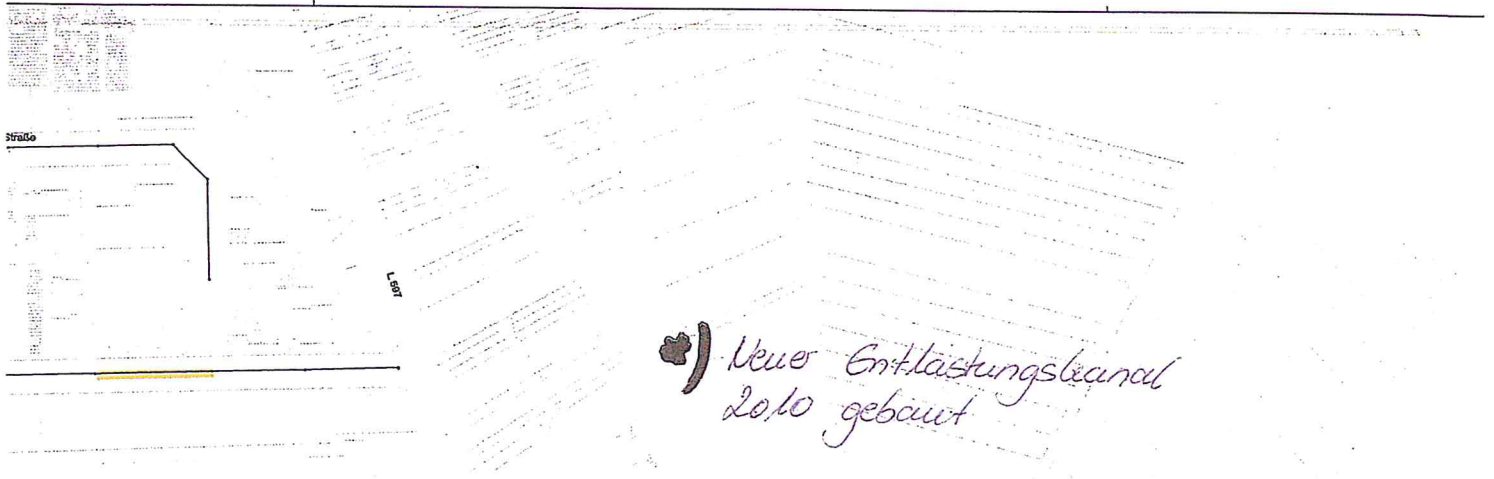 Straße
L 597
Neuer Entlastungskanal
2010 gebaut